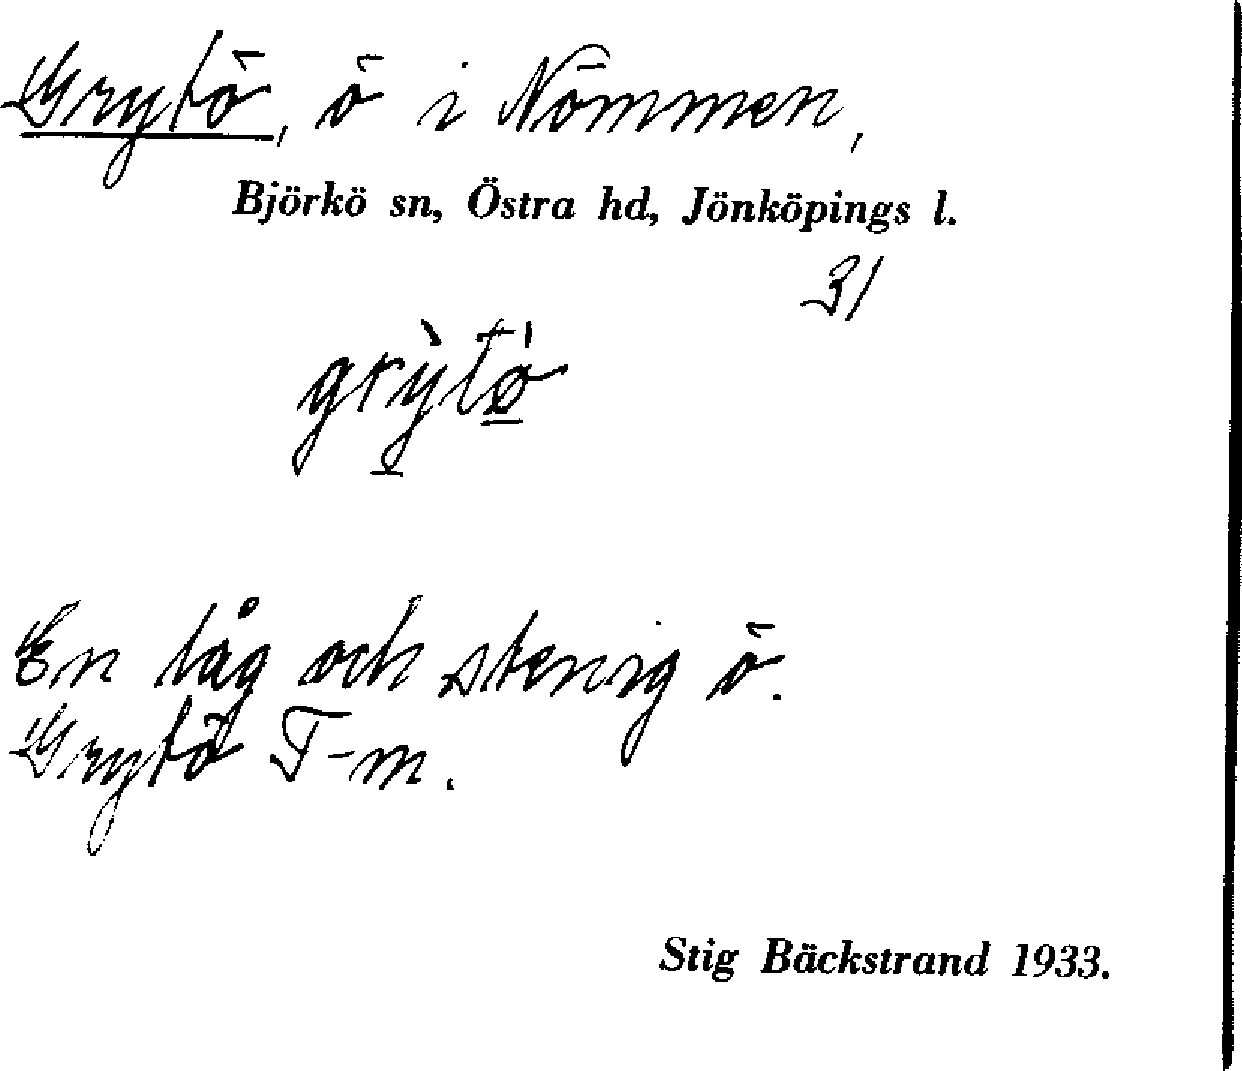 Grytö, ö i Nömmen,
Björkö sn, Östra hd, Jönköpings l.
31
grỳtö́
En låg och stenig ö.
Grytö T-m.
Stig Bäckstrand 1933.